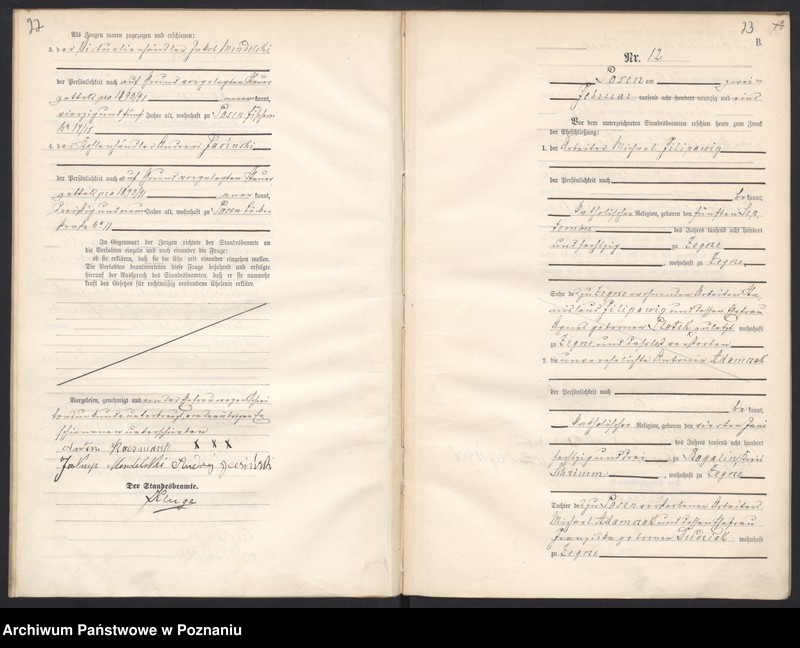 22
Als Zeugen waren zugezogen und erschienen:
3. der Victualienhändler Jakob Mendelski
der Persönlichkeit nach auf Grund vorgelegten Steuer
zettels pro 1890/91 anerkannt,
vierzig und fünf Jahre alt, wohnhaft zu Posen Fischerei
No 17/18
4. der Kohlenhändler Andreas Jasinski
der Persönlichkeit nach auf Grund vorgelegten Steuer
zettels pro 1890/91 anerkannt,
dreißig und neun Jahre alt, wohnhaft zu Posen
straße No 11
In Gegenwart der Zeugen richtete der Standesbeamte an
die Verlobten einzeln und nach einander die Frage:
ob sie erklären, daß sie die Ehe mit einander eingehen wollen.
Die Verlobten beantworteten diese Frage bejahend und erfolgte
hierauf der Ausspruch des Standesbeamten, daß er sie nunmehr
kraft des Gesetzes für rechtmäßig verbundene Eheleute erkläre.
Vorgelesen, genehmigt und von der Ehefrau wegen Schrei
bensunkunde unterkreuzt, von den übrigen Er
schienenen unterschrieben
Kaczmarek X X X
Mendelski Jasiński
Der Standesbeamte.
Kluge
23
B.
Nr. 12
Posen am zwei
Februar tausend acht hundert neunzig und eins
Vor dem unterzeichneten Standesbeamten erschien heute zum Zweck
der Eheschließung:
1. der Arbeiter Michael Filipowiz
der Persönlichkeit nach
bekannt,
katholischer Religion, geboren den fünften Sep
tember des Jahres tausend acht hundert
und sechzig zu Zegrze
, wohnhaft zu Zegrze
Sohn des zu Zegrze wohnenden Arbeiters Sta
nislaus Filipowiz und dessen Ehefrau
Agnes geborenen zuletzt wohnhaft
zu Zegrze und daselbst verstorben
2. die unverehelichte Antonie Adamczak
der Persönlichkeit nach
bekannt,
katholischer Religion, geboren den vierten Juni
des Jahres tausend acht hundert
sechzig und drei zu Rogalin, Kreis
Schrimm, wohnhaft zu Zegrze
Tochter des zu Posen verstorbenen Arbeiters
Michael Adamczak und dessen Ehefrau
Franziska geborenen Dudziak wohnhaft
zu Zegrze
Archiwum Państwowe w Poznaniu